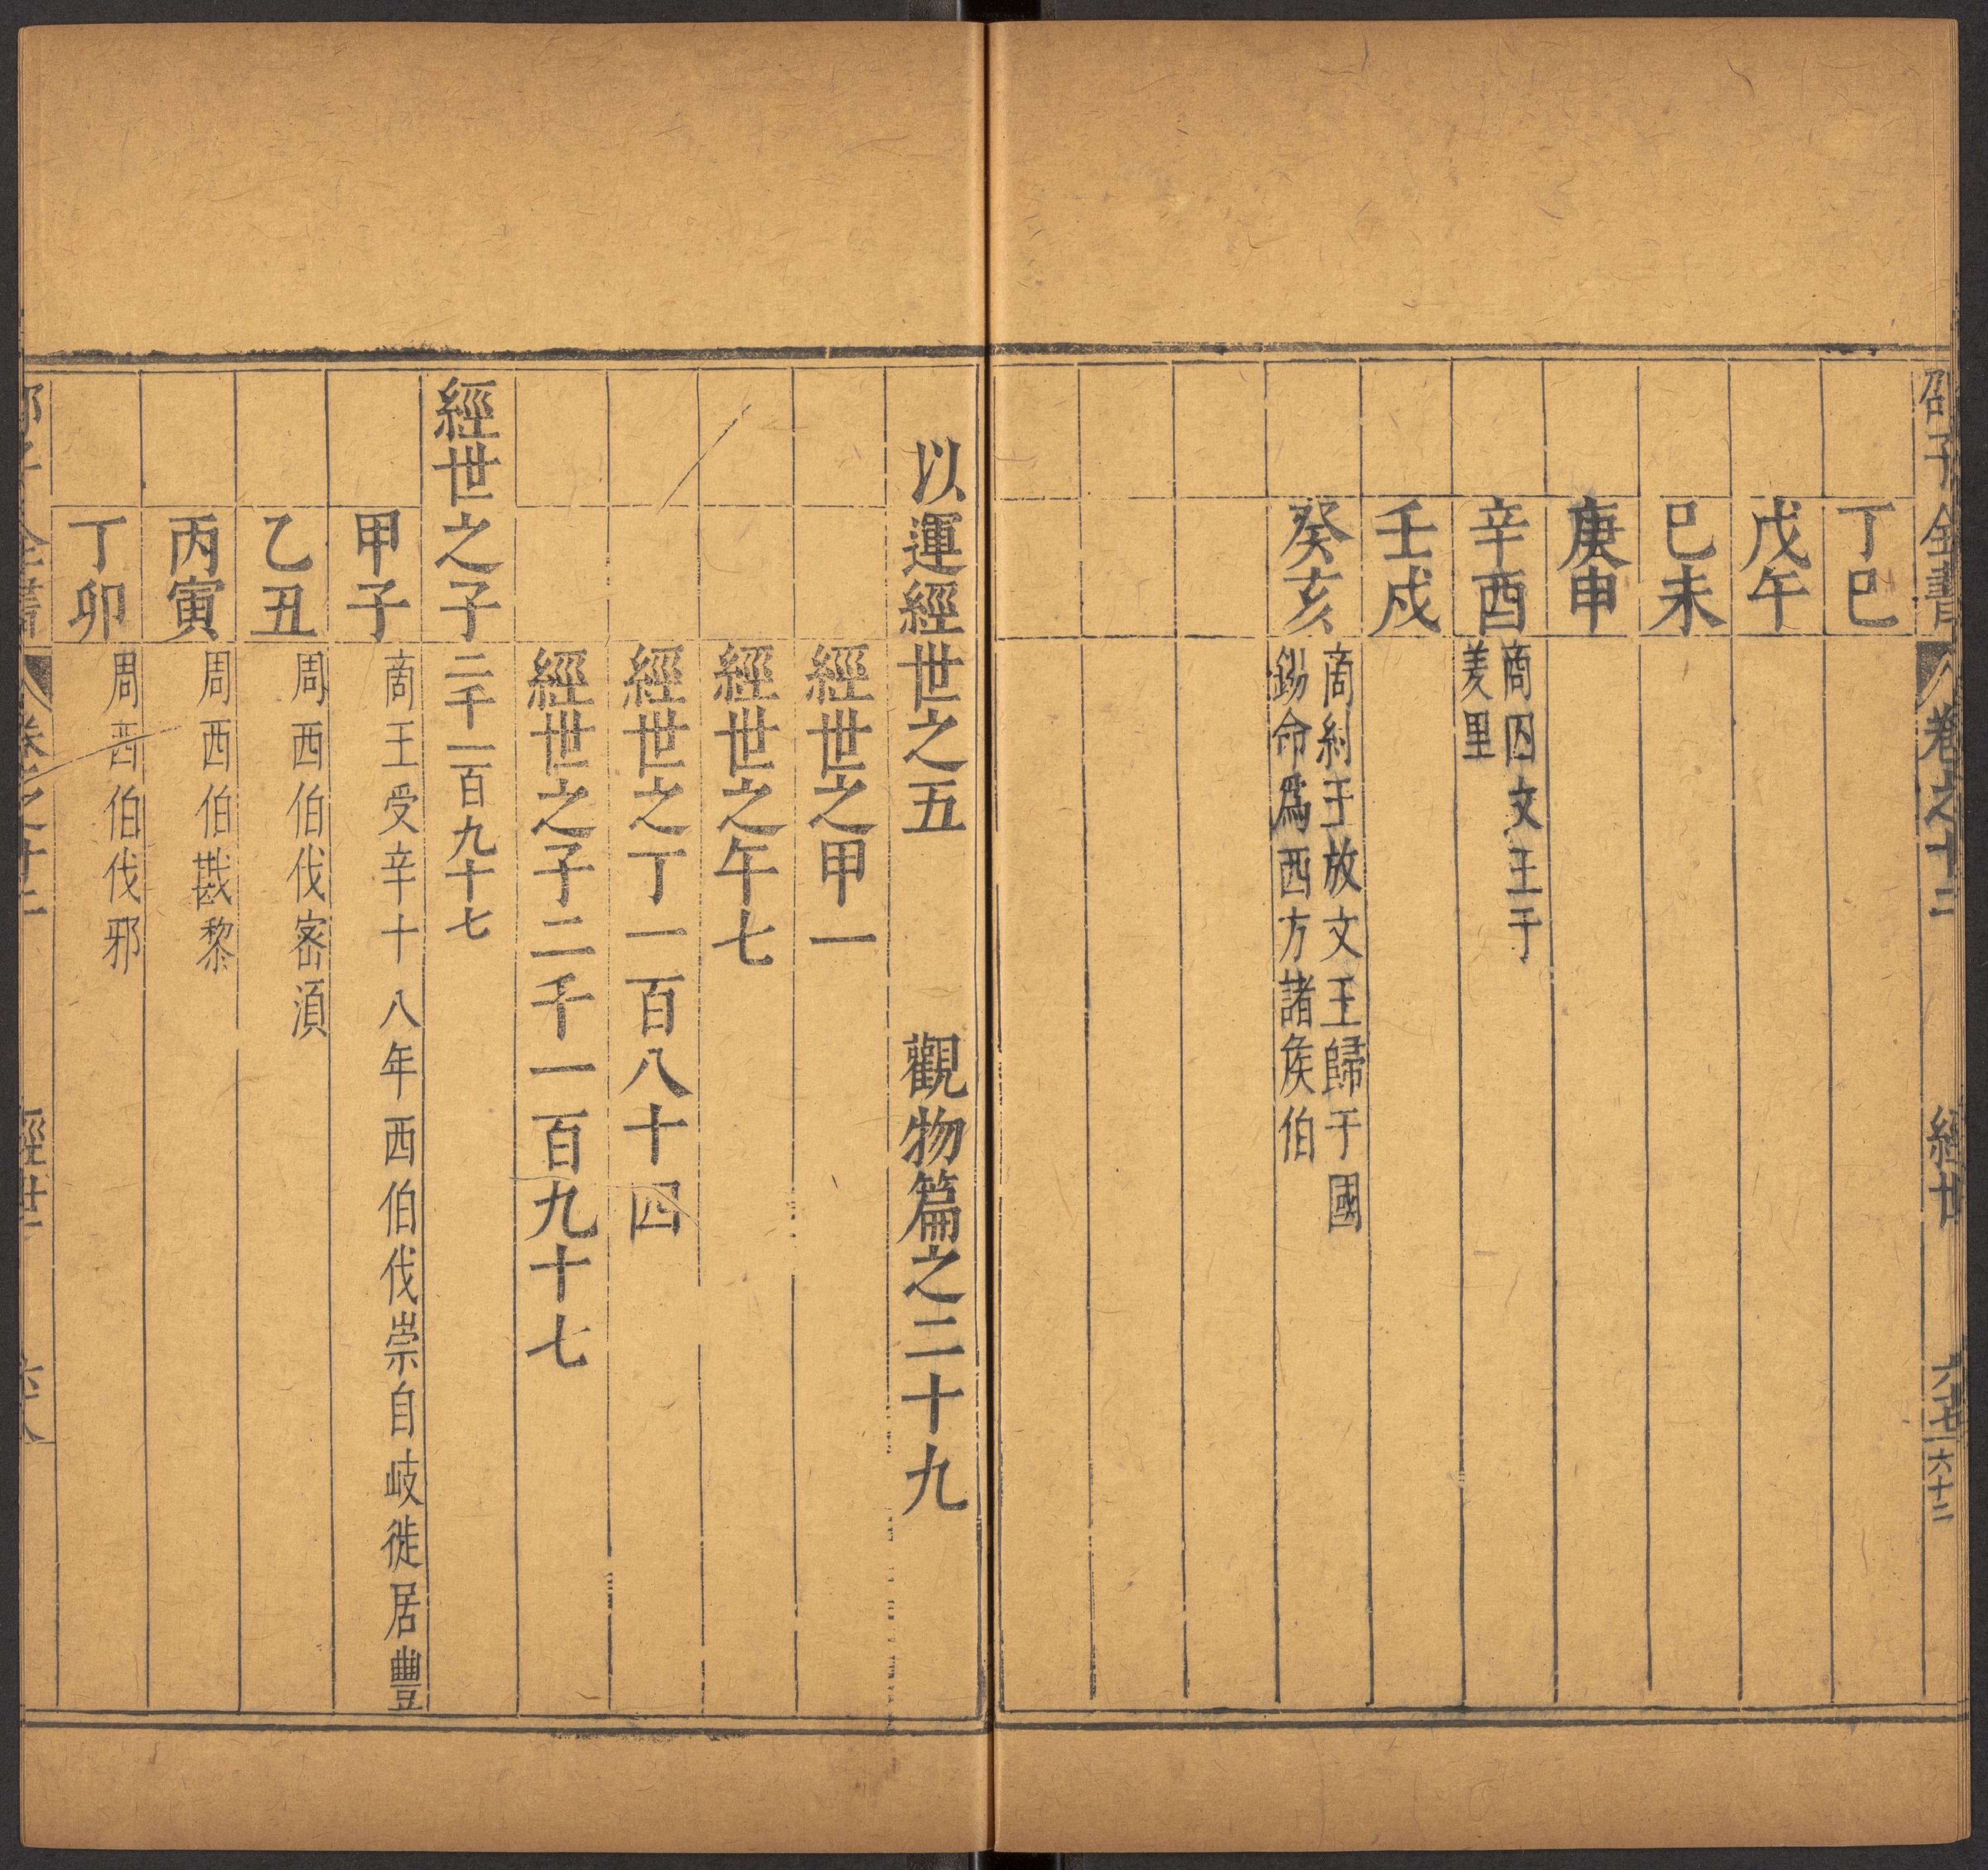 邵子全書 卷之十二 經世 六七 六十二
丁巳
戊午
巳未
庚申
辛酉 商囚文王于
羑里
壬戌
癸亥 商紂王放文王歸于國
錫命爲西方諸侯伯
以運經世之五 觀物篇之二十九
經世之甲一
經世之午七
經世之丁一百八十四
經世之子二千一百九十七
經世之子 二千一百九十七
甲子 商王受辛十八年西伯伐崇自岐徙居豐
乙丑 周西伯伐密湏
丙寅 周西伯戡黎
丁卯 周西伯伐邪
邵子全書 卷之十二 經世 六八